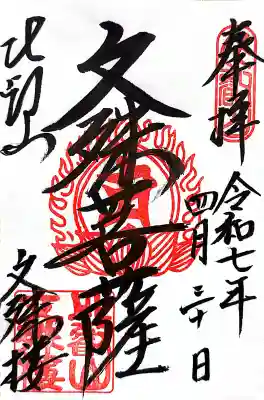 奉拝
令和七年
四月三十日
文殊菩薩
比叡山
文殊楼